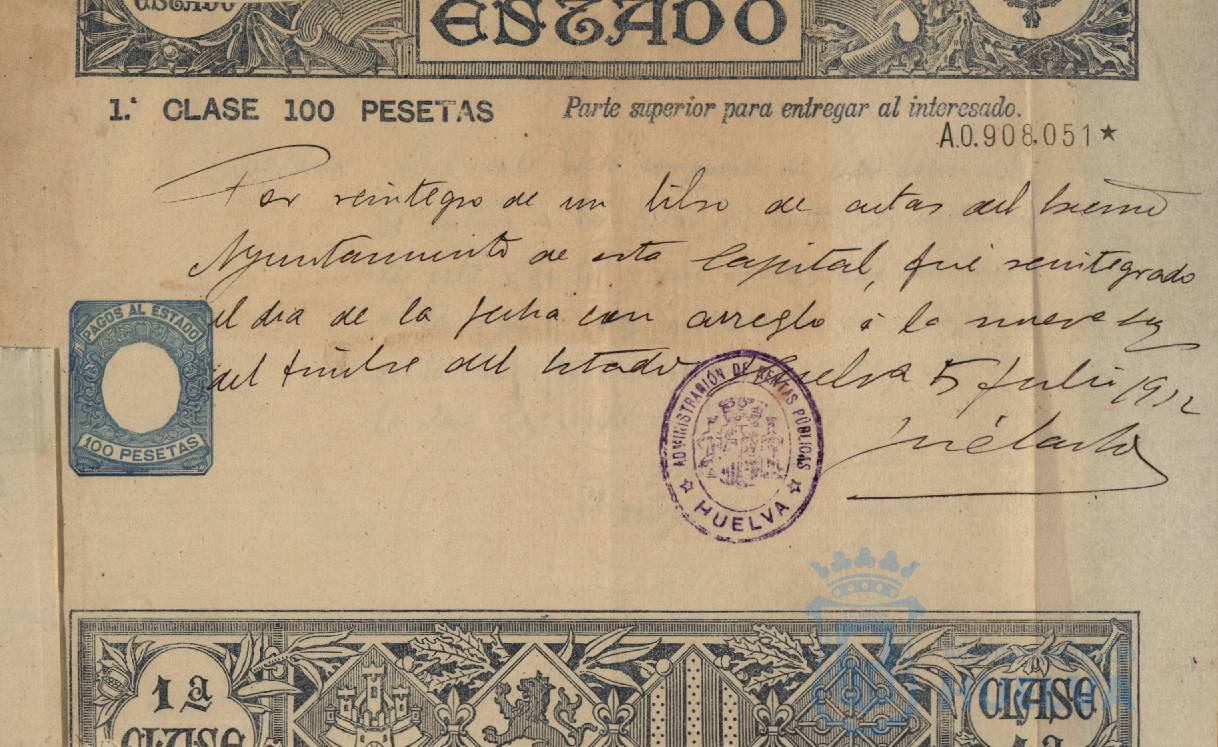 ESTADO
ESTADO
1.ª CLASE 100 PESETAS
Parte superior para entregar al interesado.
A0.908,051★
Por reintegro de un libro de actas del Excmo
Ayuntamiento de esta Capital, fué reintegrado
el dia de la fecha con arreglo á la nueva ley
del timbre del Estado Huelva 5 Julio 1912
PAGOS AL ESTADO
100 PESETAS
ADMINISTRACIÓN DE RENTAS PÚBLICAS
HUELVA
1ª
CLASE
CLASE
1ª